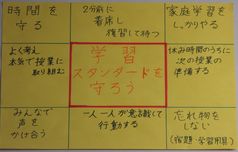 時間を
守る
2分前に
着席し
復習して待つ
家庭学習を
しっかりやる
よく考え
本気で授業に
取り組む
学習
スタンダードを
守ろう
休み時間のうちに
次の授業の
準備する
みんなで
声を
かけ合う
一人一人が意識して
行動する
忘れ物を
しない
(宿題・学習用具)